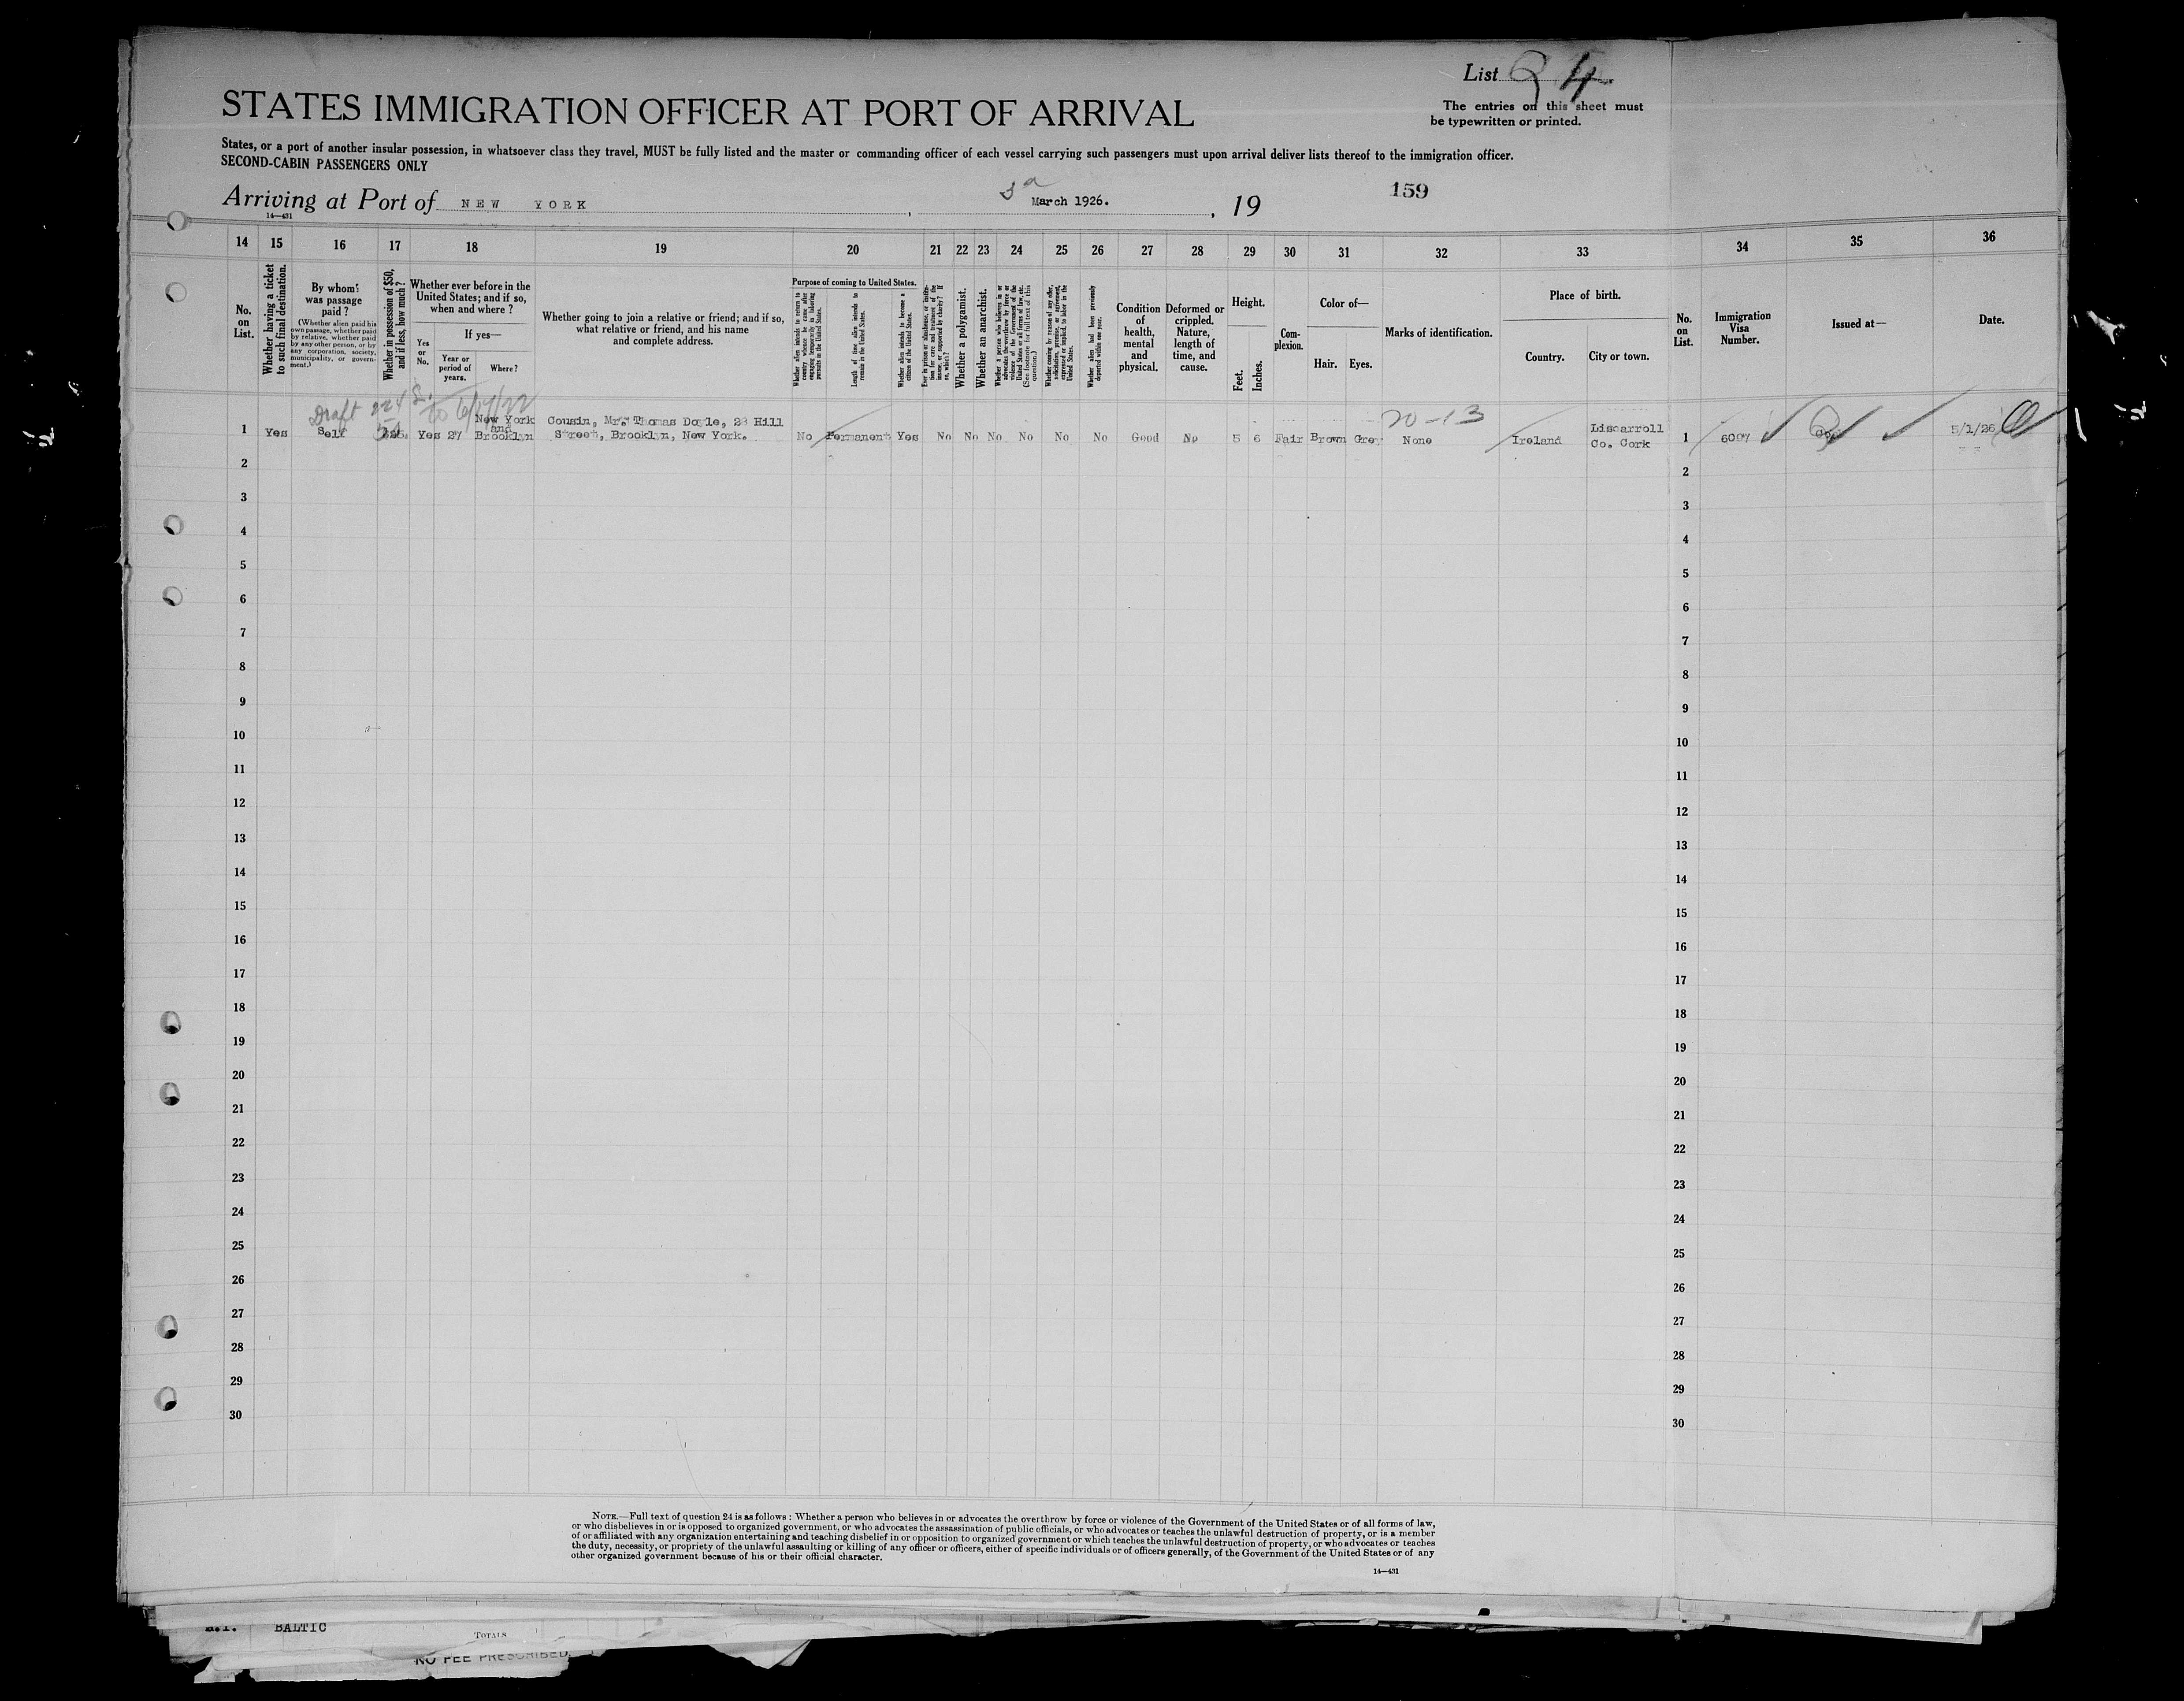 List 4
The entries on this sheet must
be typewritten or printed.
STATES IMMIGRATION OFFICER AT PORT OF ARRIVAL
States, or a port of another insular possession, in whatsoever class they travel, MUST be fully listed and the master or commanding officer of each vessel carrying such passengers must upon arrival deliver lists thereof to the immigration officer.
SECOND-CABIN PASSENGERS ONLY
Arriving at Port of NEW YORK, March 1926., 19
159
14—431
14 15 16 17 18 19 20 21 22 23 24 25 26 27 28 29 30 31 32 33 34 35 36
No. on List.
Whether having a ticket to such final destination.
By whom was passage paid?
(Whether alien paid his own passage, whether paid by relative, whether paid by any other person, or by any corporation, society, municipality, or government.)
Whether in possession of $50, and if less, how much?
Whether ever before in the United States; and if so, when and where?
Yes or No.
If yes—
Year or period of years.
Where?
Whether going to join a relative or friend; and if so, what relative or friend, and his name and complete address.
Purpose of coming to United States.
Whether alien intends to return to country whence he came after engaging temporarily in laboring pursuits in the United States.
Length of time alien intends to remain in the United States.
Whether alien intends to become a citizen of the United States.
Ever in prison or almshouse, or institution for care and treatment of the insane, or supported by charity? If so, which?
Whether a polygamist.
Whether an anarchist.
Whether a person who believes in or advocates the overthrow by force or violence of the Government of the United States or all forms of law, etc. (See footnote for full text of this question.)
Whether coming by reason of any offer, solicitation, promise, or agreement, expressed or implied, to labor in the United States.
Whether alien had been previously deported within one year.
Condition of health, mental and physical.
Deformed or crippled. Nature, length of time, and cause.
Height.
Feet. Inches.
Complexion.
Color of—
Hair. Eyes.
Marks of identification.
Place of birth.
Country. City or town.
No. on List.
Immigration Visa Number.
Issued at—
Date.
Draft 20-13
1 Yes Self Yes 27 New York and Brooklyn Cousin, Mr. Thomas Doyle, 28 Hill Street, Brooklyn, New York. No Permanent Yes No No No No No No Good No 5 6 Fair Brown Grey None Ireland Liscarroll Co. Cork 1 6097 5/1/26
2 2
3 3
4 4
5 5
6 6
7 7
8 8
9 9
10 10
11 11
12 12
13 13
14 14
15 15
16 16
17 17
18 18
19 19
20 20
21 21
22 22
23 23
24 24
25 25
26 26
27 27
28 28
29 29
30 30
NOTE.—Full text of question 24 is as follows: Whether a person who believes in or advocates the overthrow by force or violence of the Government of the United States or of all forms of law,
or who disbelieves in or is opposed to organized government, or who advocates the assassination of public officials, or who advocates or teaches the unlawful destruction of property, or is a member
of or affiliated with any organization entertaining and teaching disbelief in or opposition to organized government or which teaches the unlawful destruction of property, or who advocates or teaches
the duty, necessity, or propriety of the unlawful assaulting or killing of any officer or officers, either of specific individuals or of officers generally, of the Government of the United States or of any
other organized government because of his or their official character.
14—431
BALTIC
TOTALS
NO FEE PRESCRIBED